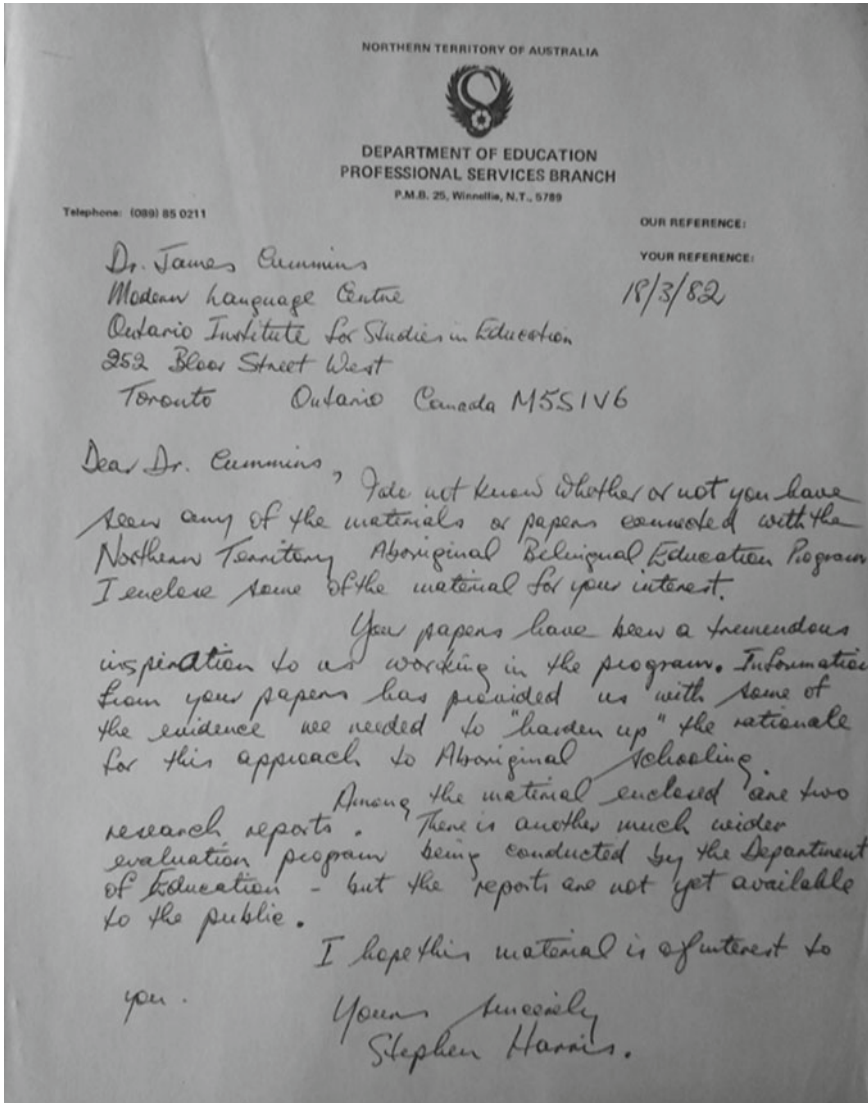 NORTHERN TERRITORY OF AUSTRALIA
DEPARTMENT OF EDUCATION
PROFESSIONAL SERVICES BRANCH
P.M.B. 25, Winnellie, N.T., 5789
Telephone: (089) 85 0211
OUR REFERENCE:
YOUR REFERENCE:
18/3/82
Dr. James Cummins
Modern Language Centre
Ontario Institute for Studies in Education
252 Bloor Street West
Toronto Ontario Canada M5S1V6
Dear Dr. Cummins,
I do not know whether or not you have
seen any of the materials or papers connected with the
Northern Territory Aboriginal Bilingual Education Program
I enclose some of the material for your interest.
Your papers have been a tremendous
inspiration to us working in the program. Information
from your papers has provided us with some of
the evidence we needed to "harden up" the rationale
for this approach to Aboriginal schooling.
Among the material enclosed are two
research reports. There is another much wider
evaluation program being conducted by the Department
of Education - but the reports are not yet available
to the public.
I hope this material is of interest to
you.
Yours sincerely
Stephen Harris.